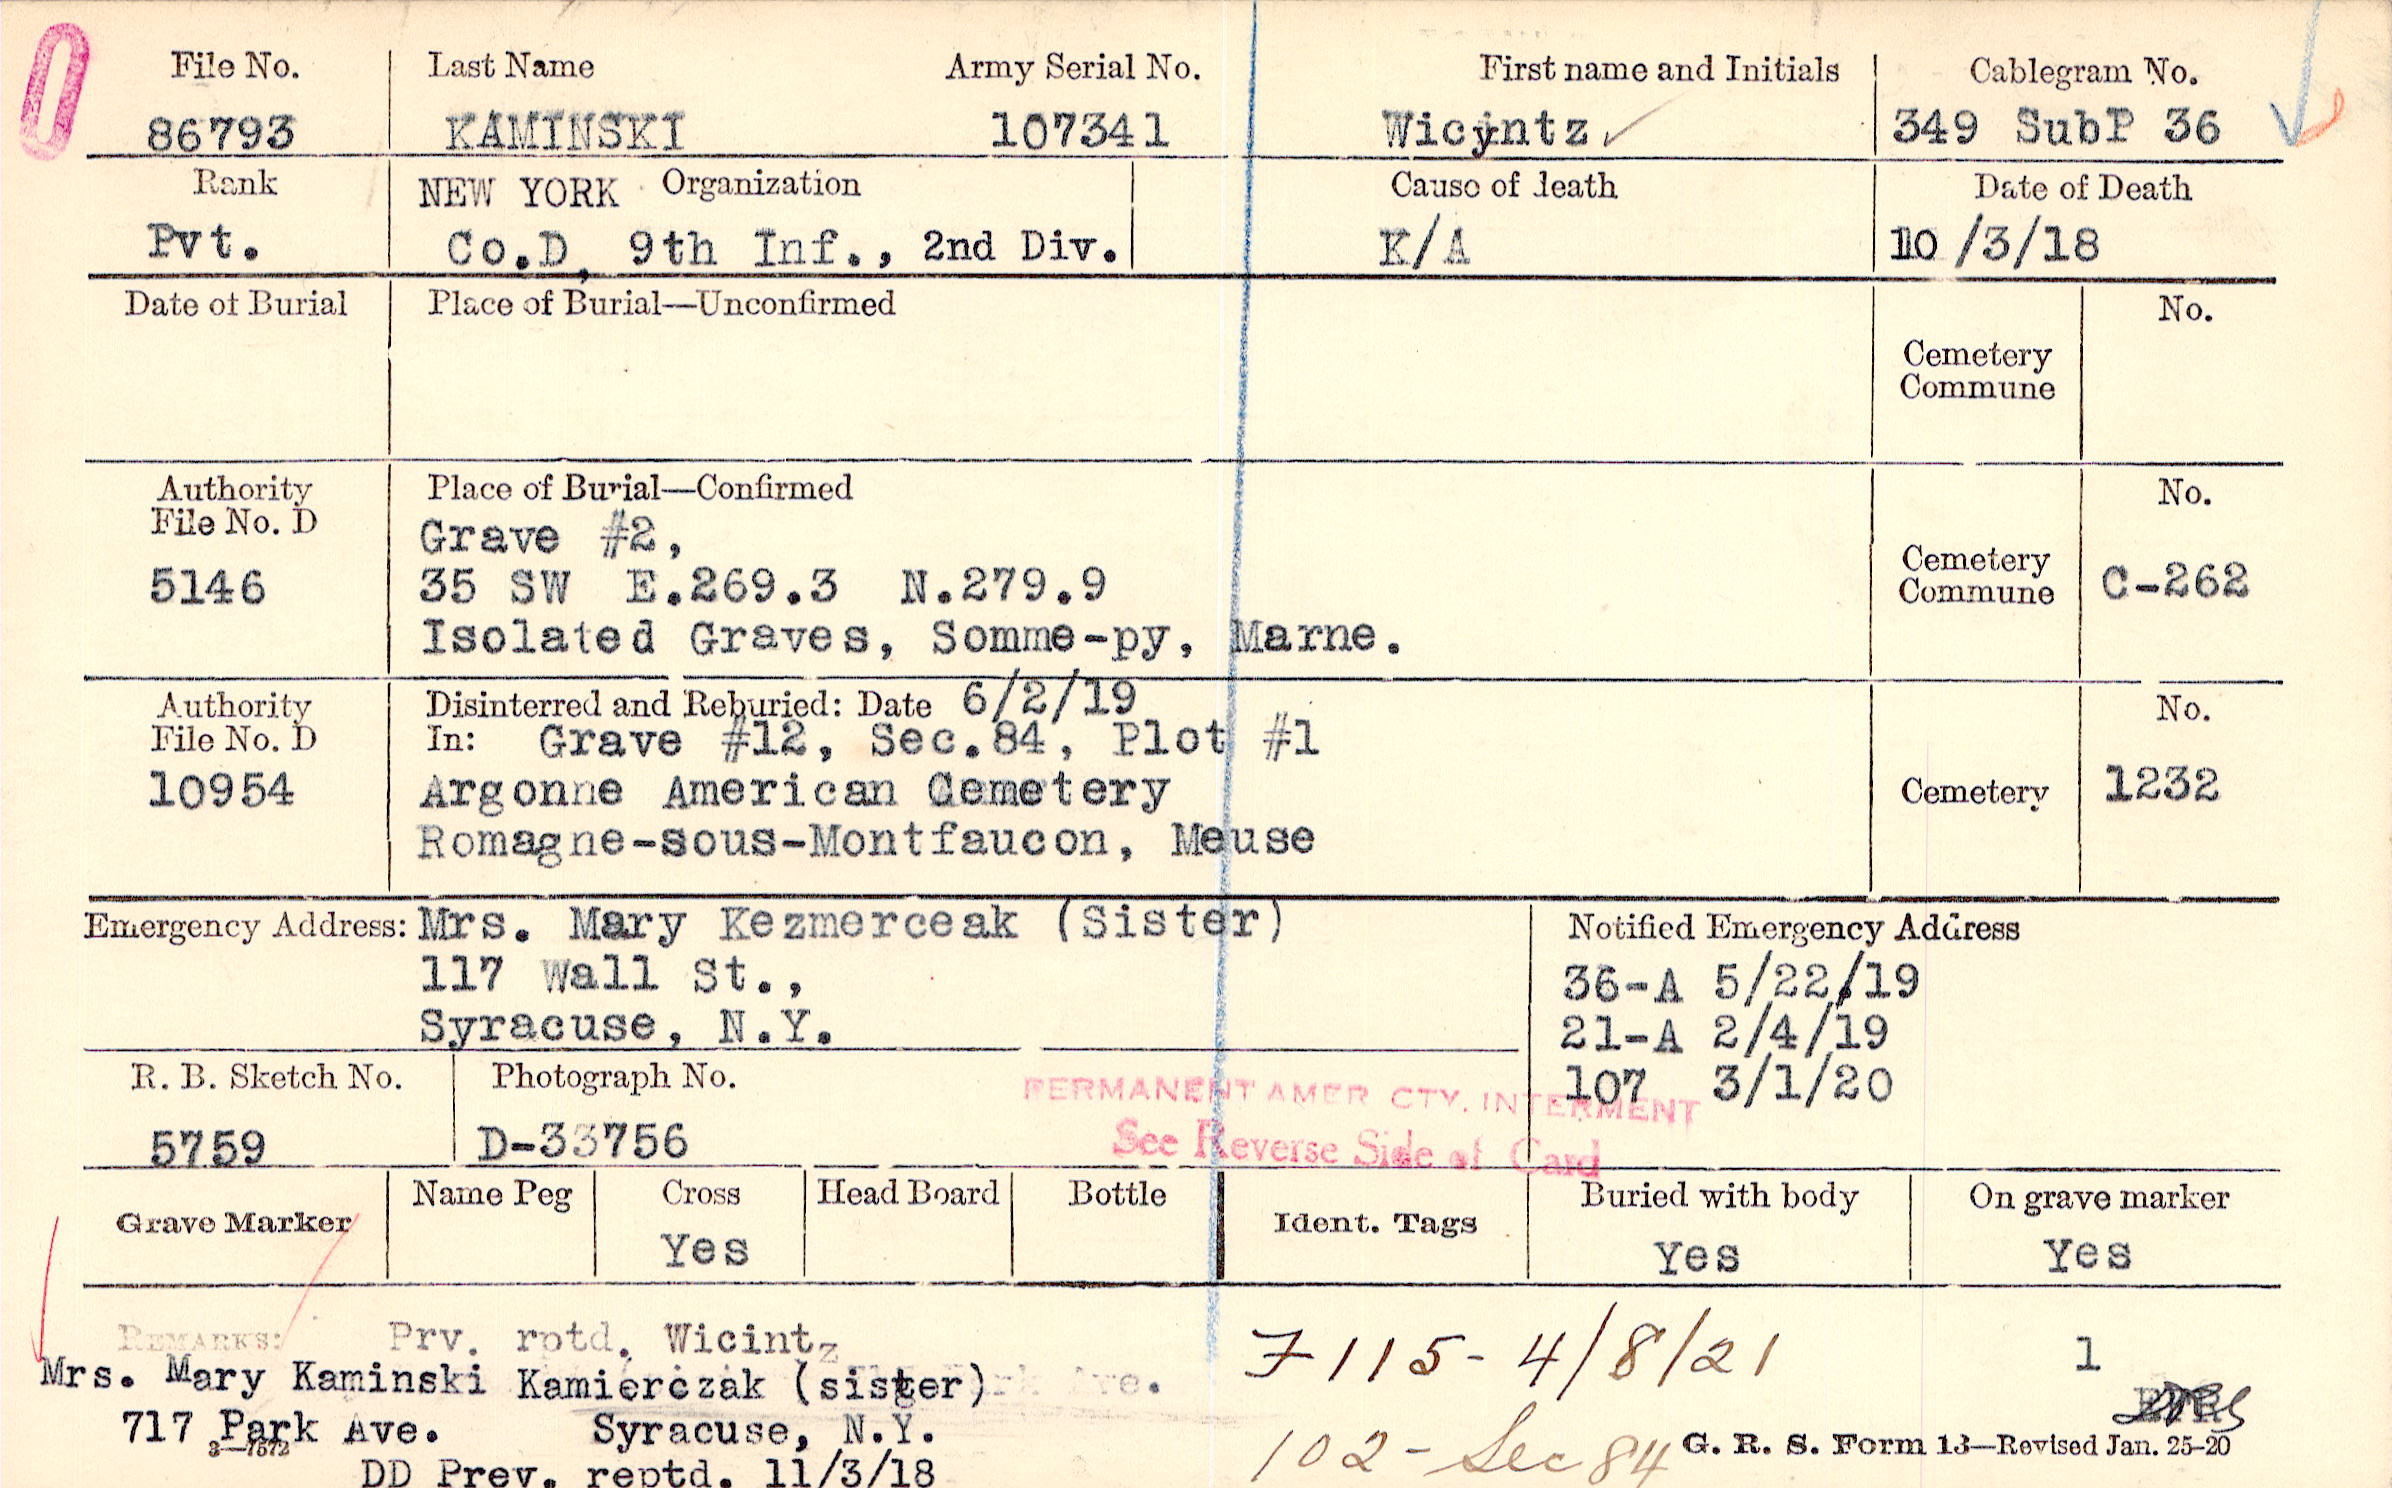 File No. Last Name Army Serial No. First name and Initials Cablegram No.
86793 KAMINSKI 107341 Wicyntz 349 SubP 36
Rank NEW YORK Organization Cause of death Date of Death
Pvt. Co.D, 9th Inf., 2nd Div. K/A 10/3/18
Date of Burial Place of Burial—Unconfirmed No.
Cemetery
Commune
Authority Place of Burial—Confirmed No.
File No. D Grave #2,
5146 35 SW E.269.3 N.279.9 Cemetery Commune C-262
Isolated Graves, Somme-py, Marne.
Authority Disinterred and Reburied: Date 6/2/19 No.
File No. D In: Grave #12, Sec.84, Plot #1
10954 Argonne American Cemetery Cemetery 1232
Romagne-sous-Montfaucon, Meuse
Emergency Address: Mrs. Mary Kezmerceak (Sister) Notified Emergency Address
117 Wall St., 36-A 5/22/19
Syracuse, N.Y. 21-A 2/4/19
R. B. Sketch No. Photograph No. 107 3/1/20
PERMANENT AMER CTY. INTERMENT
5759 D-33756 See Reverse Side of Card
Grave Marker Name Peg Cross Head Board Bottle Ident. Tags Buried with body On grave marker
Yes Yes Yes
REMARKS: Prv. rptd. Wicintz 7115- 4/8/21 1
Mrs. Mary Kaminski Kamierczak (sister)
717 Park Ave. Syracuse, N.Y.
3—7572
DD Prev. reptd. 11/3/18 102- Sec 84 G. R. S. Form 13—Revised Jan. 25-20